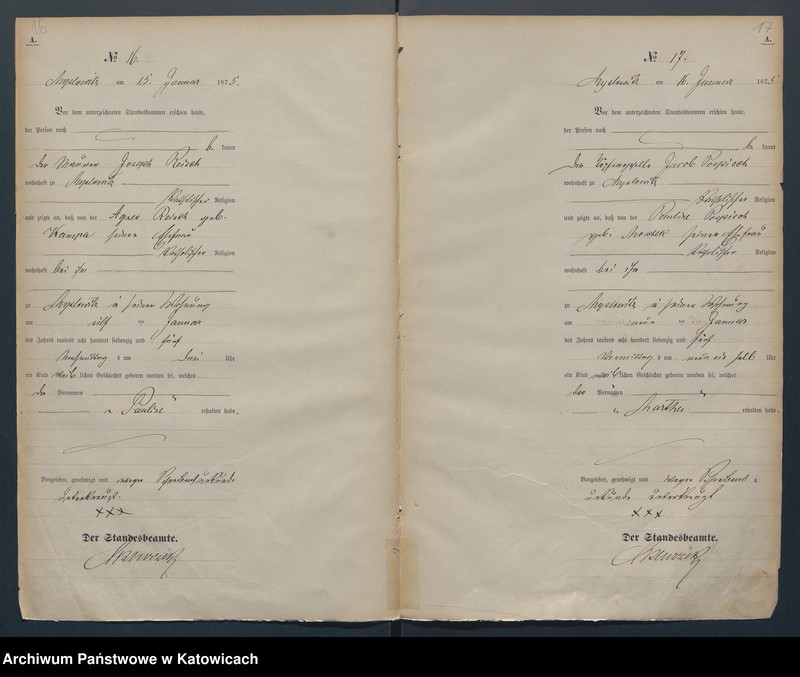 16
A.
№ 16.
Myslowitz am 15. Januar 1875.
Vor dem unterzeichneten Standesbeamten erschien heute,
der Person nach
b kannt
Der Maurer Joseph
wohnhaft zu Myslowitz
Katholischer Religion
und zeigte an, daß von der Agnes geb.
Kampa seiner Ehefrau
Katholischer Religion
wohnhaft bei ihm
zu Myslowitz in seiner Wohnung
am elf ten Januar
des Jahres tausend acht hundert siebenzig und fünf
Nachmittag s um drei Uhr
ein Kind weiblichen Geschlechts geboren worden sei, welches
den Vornamen
Pauline erhalten habe.
Vorgelesen, genehmigt und wegen
unterkreuzt.
XXX
Der Standesbeamte.
17
A.
№ 17.
Myslowitz am 16. Januar 1875
Vor dem unterzeichneten Standesbeamten erschien heute,
der Person nach
be kannt
Jacob Pospiech
wohnhaft zu Myslowitz
Katholischer Religion
und zeigte an, daß von der Pauline Pospiech
geb. seiner Ehefrau
Katholischer Religion
wohnhaft bei ihm
zu Myslowitz in seiner Wohnung
am neun ten Januar
des Jahres tausend acht hundert siebenzig und fünf
Vormittag s um neun ein halb Uhr
ein Kind weiblichen Geschlechts geboren worden sei, welches
den Vornamen
Martha erhalten habe.
Vorgelesen, genehmigt und wegen
unterkreuzt
XXX
Der Standesbeamte.
Archiwum Państwowe w Katowicach